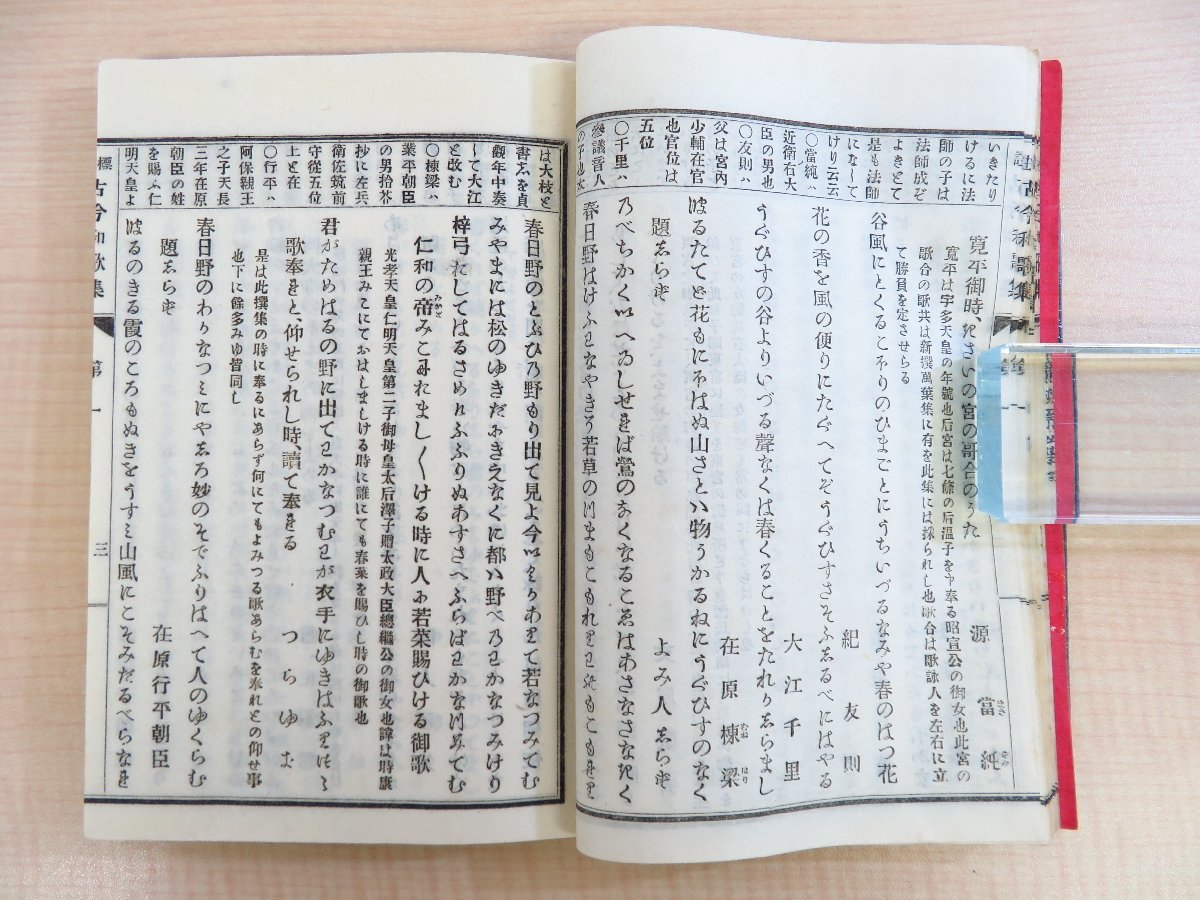 いきたり
けるに法
師の子は
法師成ぞ
よきとて
是も法師
になして
けり云云
〇當純ハ
近衛右大
臣の男也
〇友則ハ
父は宮内
少輔在原
也官位は
五位
〇千里ハ
參議音人
の子也大
寛平御時、きさいの宮の哥合のうた
源當純
寛平は宇多天皇の年號也后宮は七條の后温子を申奉る昭宣公の御女也此宮の
歌合の歌共は新撰萬葉集に有を此集には採られし也歌合は歌詠人を左右に立
て勝負を定させらる
谷風にとくるこほりのひまごとにうちいづるなみや春のはつ花
紀友則
花の香を風の便りにたぐへてぞうぐひすさそふしるべにはやる
大江千里
うぐひすの谷よりいづる聲なくは春くることをたれかしらまし
在原棟梁
はるたてど花もにほはぬ山ざとハ物うかるねにうぐひすのなく
題しらず
よみ人しらず
乃べちかくいへゐしせれば鶯のなくなるこゑはあさなさなきく
春日野はけふはなやきそ若草のつまもこもれりわれもこもれり
は大枝と
書しを貞
觀年中奏
して大江
と改む
〇棟梁ハ
業平朝臣
の男拾芥
抄に左兵
衛佐筑前
守從五位
上と在
〇行平ハ
阿保親王
之子天長
三年在原
朝臣の姓
を賜ふ仁
明天皇よ
春日野のとぶひ乃野もり出て見よ今いくかありて若なつみてむ
みやまには松のゆきだにきえなくに都ハ野べ乃わかなつみけり
梓弓おしてはるさめけふふりぬあすさへふらばわかなつみてむ
仁和の帝みこにおましましける時に人に若菜賜ひける御歌
光孝天皇仁明天皇第二子御母皇太后澤子贈太政大臣總繼公の御女也諱は時康
親王みこにておはしましける時に誰にても春菜を賜ひし時の御歌也
君がためはるの野に出てわかなつむわが衣手にゆきはふりつゝ
歌奉れと、仰せられし時、讀て奉れる
つらゆき
是は此撰集の時に奉るにあらず何にてもよみつる歌あらむを奉れとの仰せ事
也下に餘多みゆ皆同し
春日野のわかなつミにやしろ妙のそでふりはへて人のゆくらむ
題しらず
在原行平朝臣
はるのきる霞のころもぬきをうすミ山風にこそみだるべらなれ
標
古今和歌集
第一
三